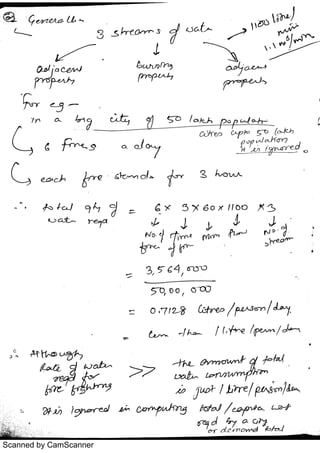 ② Generally
3 streams of water → 1100 litre/min
1.1 m³/min
adjacent property
burning property
adjacent property
For eg –
In a big city of 50 lakh population
cities upto 50 lakh population it is ignored.
6 fires a day
each fire stands for 3 hour
∴ total qty of water reqd = 6 × 3 × 60 × 1100 × 3
No. of fire Time of fire Min Flow No. of stream
= 3,564,000
50,00,000
= 0.7128 litres/person/day
= Less than 1 litre/person/day
∴ Although, Rate of water reqd for fire fighting >> the ammount of total water consumption is just 1 litre/person/day
It is ignored in computing total/capita wat reqd by a city or demand total
Scanned by CamScanner